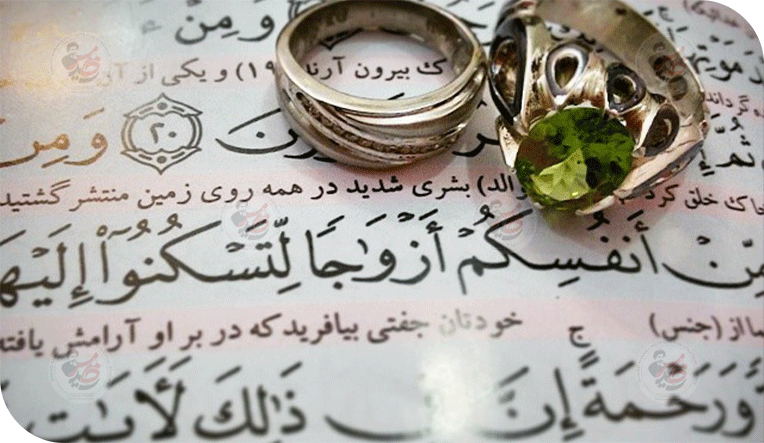 وَمِنْ
ک بیرون آرند (۱۹) و یکی از آ
۲۰ وَمِنْ
والد) بشری شدید در همه روی زمین منتشر گشتید
خاک خلق کرد
مِّنْ أَنفُسِكُمْ أَزْوَٰجًا لِّتَسْكُنُوٓا۟ إِلَيْهَا
ما از (جنس) خودتان جفتی بیافرید که در بر او آرامش یافته
وَرَحْمَةً إِنَّ ذَٰلِكَ لَأَيَٰتٍ